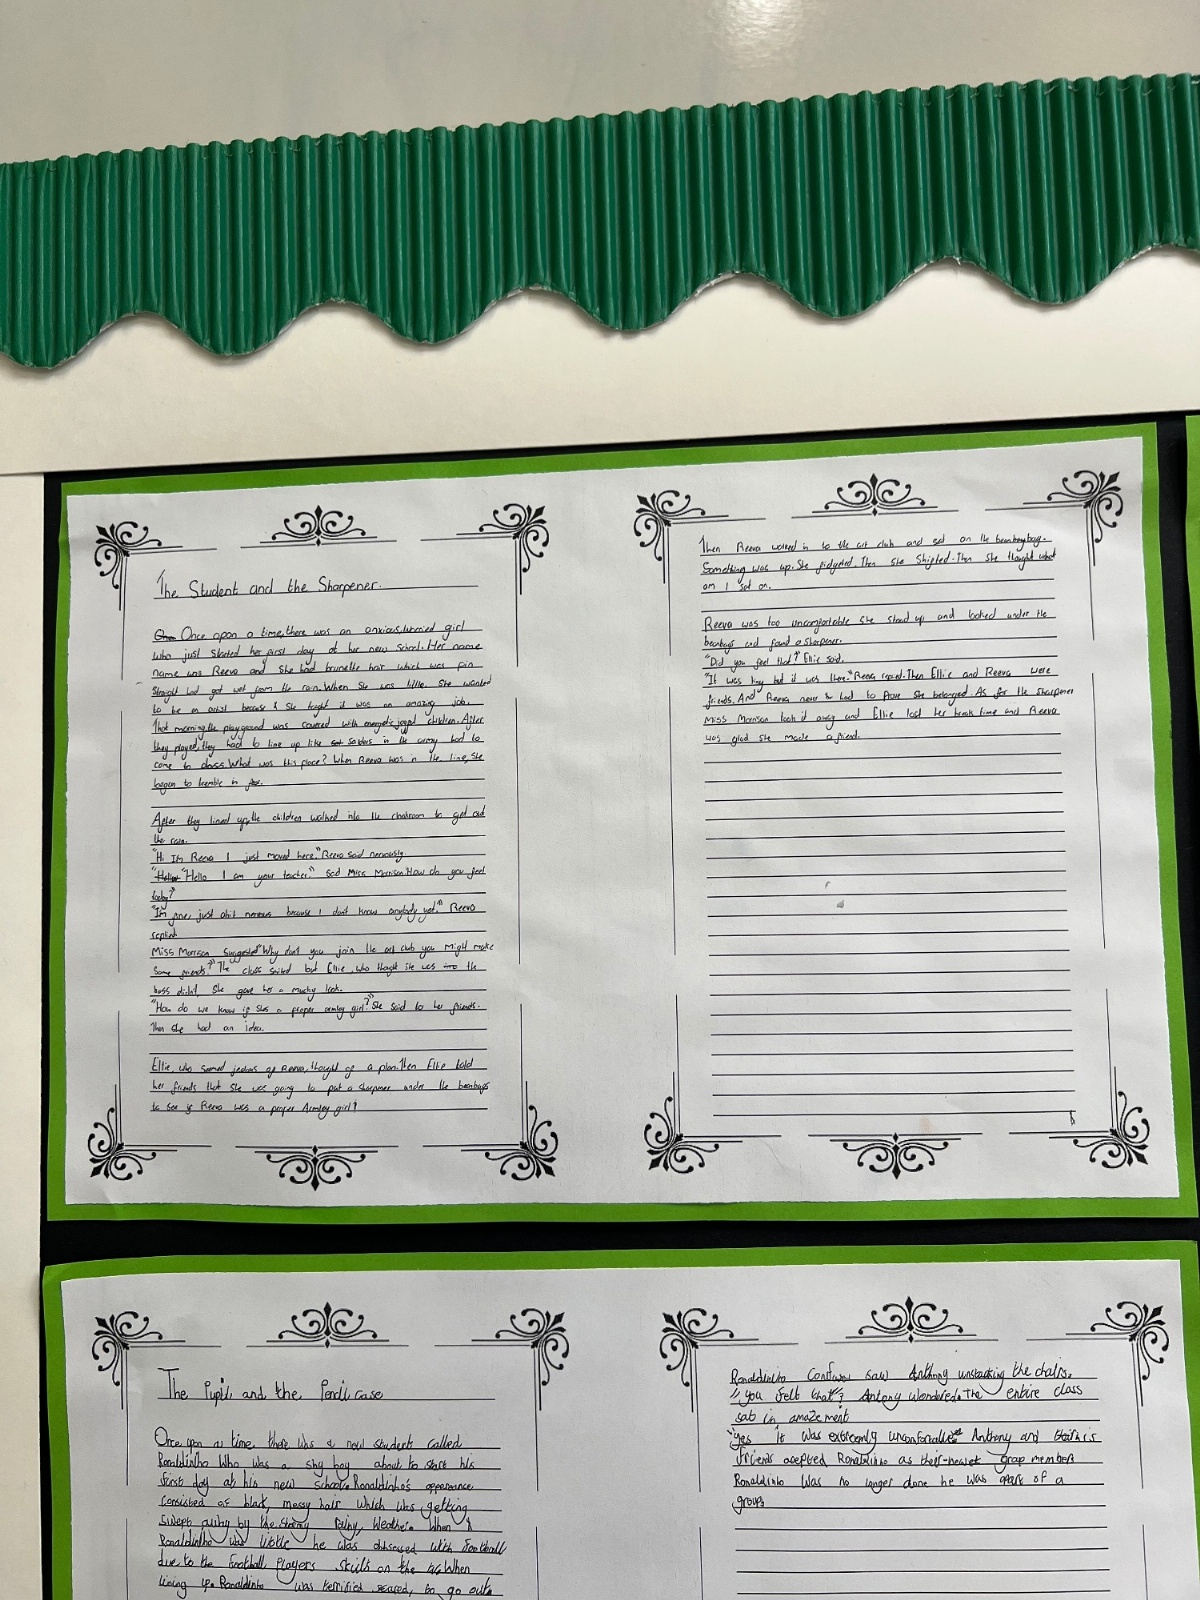 The Student and the Sharpener.
Once upon a time, there was an anxious, worried girl
who just started her first day at her new school. Her name
name was Reeva and she had brunette hair which was pin
straight had got wet from the rain. When she was little. She wanted
to be an artist because she thught it was an amazing job.
That morning, the playground was covered with energetic, joyful children. After
they played, they had to line up like soldiers in the army had to
come to class. What was this place? When Reeva was in the line, she
began to tremble in fear.
After they lined up, the children walked into the classroom to get out
the rain.
"Hi Im Reeva I just moved here." Reeva said nervously.
"Hello I am your teacher." said Miss Morrison. How do you feel
today?"
"Im fine, just abit nervous because I dont know anybody yet." Reeva
replied.
Miss Morrison suggested "Why don't you join the art club you might make
some friends?" The class smiled but Ellie, who thought she was the
boss didn't, She gave her a murky look.
"How do we know if shes a proper armley girl?" She said to her friends.
Then she had an idea.
Ellie, who seemed jealous of Reeva, thought of a plan. Then Ellie told
her friends that she was going to put a sharpener under the beanbags
to see if Reeva was a proper Armley girl!
Then Reeva walked in to the art club and sat on the beanbag.
Something was up. She fidgeted. Then she shifted. Then she thought what
am I sat on.
Reeva was too uncomfortable she stand up and looked under the
beanbags and found a sharpener.
"Did you feel that?" Ellie said.
"It was tiny but it was there." Reeva Then Ellie and Reeva were
friends. And Reeva never had to prove she belonged. As for the sharpener
Miss Morrison took it away and Ellie lost her break time and Reeva
was glad she made a friend.
The Pupil and the Pencil case
Once upon a time, there was a new student called
Ronaldinho Who was a shy boy about to start his
first day at his new school. Ronaldinho's appearance
consisted of black, messy hair which was getting
swept away by the stormy rainy, weather. When
Ronaldinho was little he was obsessed with football
due to the football players skills on the When
lining up. Ronaldinho was terrified scared, to go out
Ronaldinho saw Anthony unstacking the chairs.
"you felt that"? Antony wondered. The entire class
sat in amazement
"Yes it was extremely Anthony and
friends accepted Ronaldinho as their newest group members
Ronaldinho was no longer alone he was apart of a
group